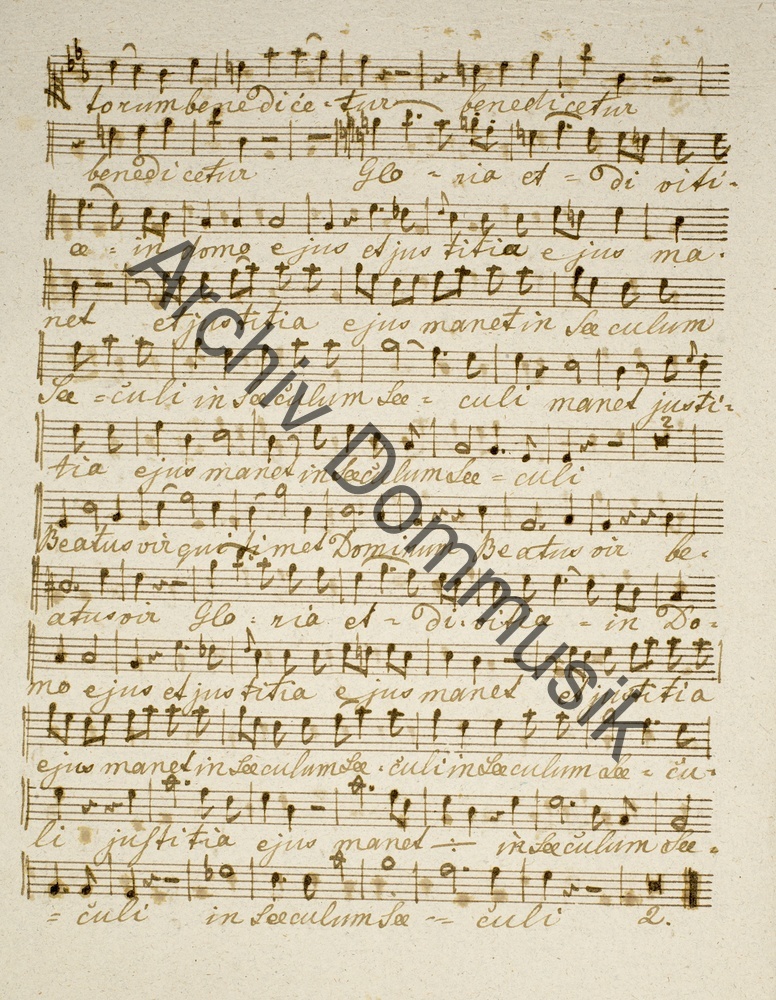 torum benedice-tur benedicetur
benedicetur Glo - ria et - di viti-
æ - in domo ejus et justitia ejus ma-
net et justitia ejus manet in Sæculum
Sæ - culi in Sæculum Sæ - culi manet justi-
tia ejus manet in Sæculum Sæ = culi
2
Beatus vir qui timet Dominum Beatus vir be-
atus vir Glo - ria et - di - vitiæ - in Do-
mo ejus et justitia ejus manet et justitia
ejus manet in Sæculum Sæ - culi in Sæculum Sæ - cu-
li justitia ejus manet ÷ in Sæculum Sæ-
= culi in Sæculum Sæ -- culi 2.
Archiv Dommusik